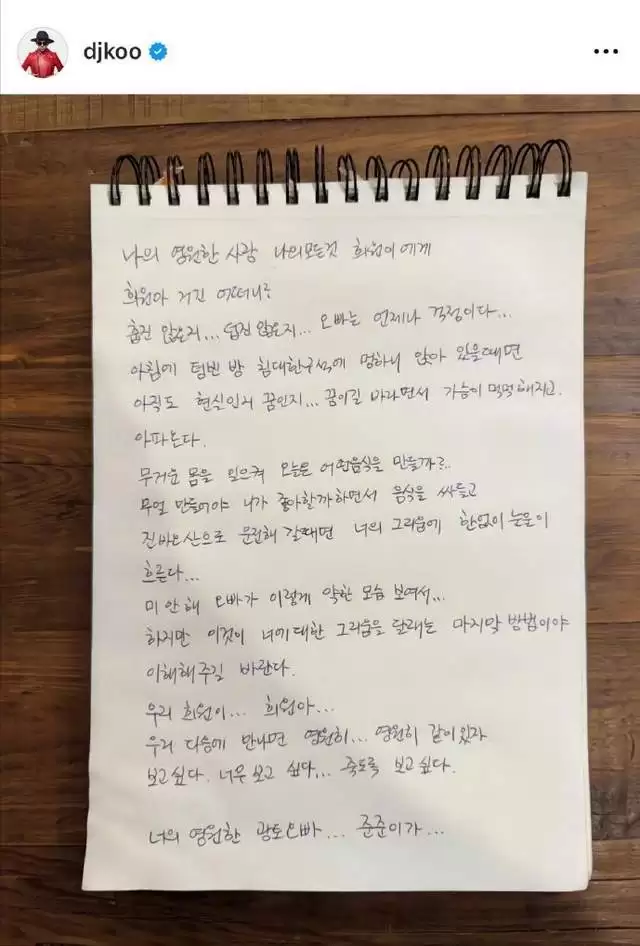 djkoo
나의 영원한 사랑 나의모든것 희원이 에게
희원아 거긴 어떠니?
춥진 않은지... 덥진 않은지... 오빠는 언제나 걱정이다...
아침에 텅빈 방 침대한구석에 멍하니 앉아 있을때면
아직도 현실인지 꿈인지... 꿈이길 바라면서 가슴이 먹먹해지고.
아파온다.
무거운 몸을 일으켜 오늘은 어떤음식을 만들까?..
무얼 만들어야 니가 좋아할까하면서 음식을 싸들고
진바오산으로 운전해 갈때면 너의 그리움에 한없이 눈물이
흐른다...
미안해 오빠가 이렇게 약한 모습 보여서...
하지만 이것이 너에대한 그리움을 달래는 마지막 방법이야
이해해주길 바란다.
우리 희원이... 희원아...
우리 다음에 만나면 영원히... 영원히 같이있자
보고싶다. 너무 보고 싶다... 죽도록 보고싶다.
너의 영원한 광토오빠... 준준이가...